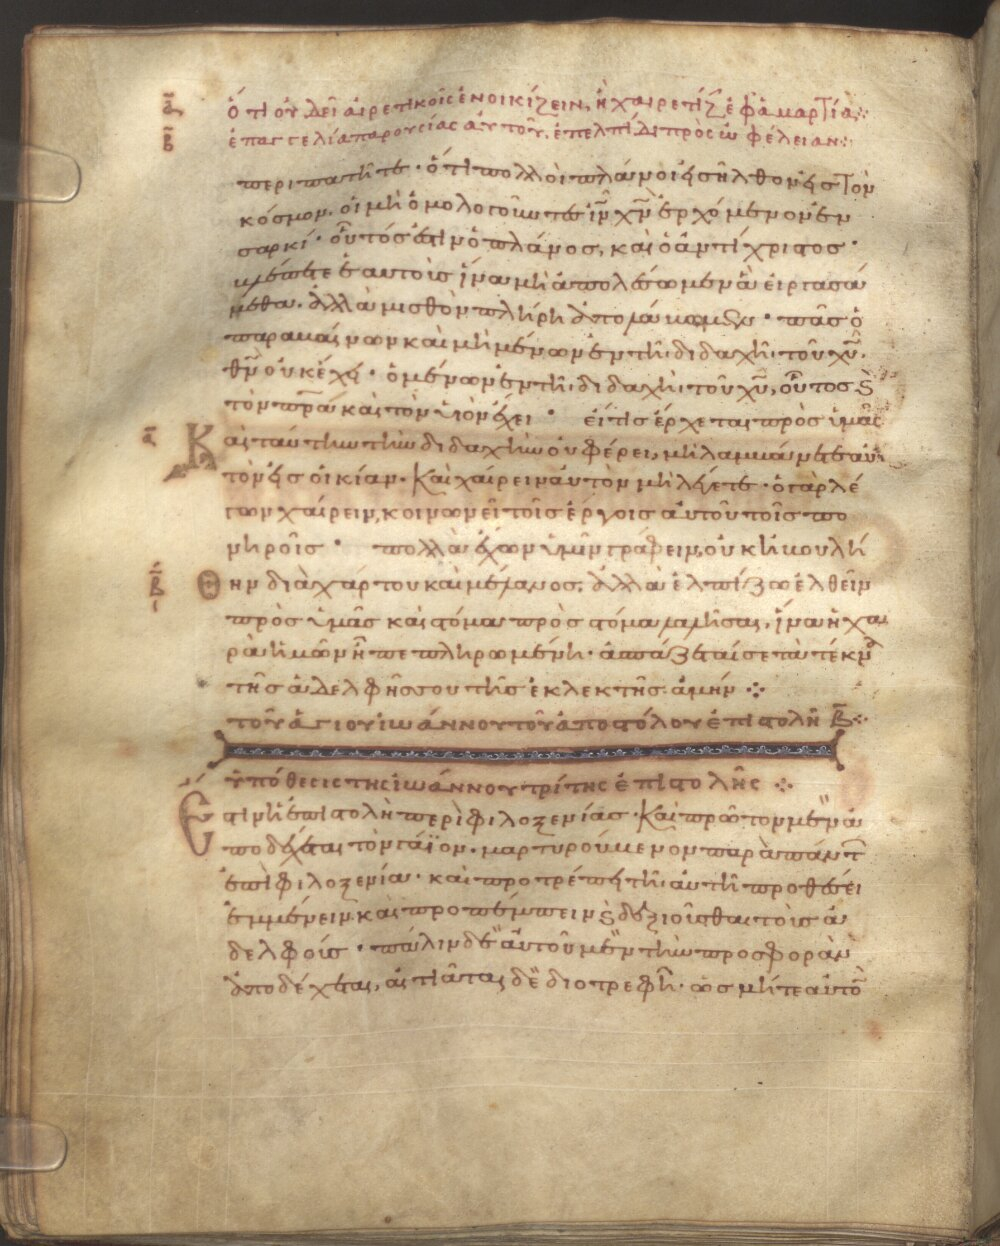 α ὅτι οὐ δεῖ αἱρετικοῖς ἐνοικίζειν, ἢ χαιρετίζ ἐφ ἁμαρτία:
β ἐπαγγελία παρουσίας αὐτοῦ, ἐπ ελπίδι πρὸς ὠφέλειαν:
περιπατῆτε · ὅτι πολλοὶ πλάνοι εἰσῆλθον εἰς τὸν
κόσμον. οἱ μὴ ὁμολογοῦντες ιν χν ἐρχόμενον ἐν
σαρκί · οὗτός ἐστιν ὁ πλάνος, καὶ ὁ ἀντίχριστος ·
βλέπετε ἑαυτοὺς ἵνα μὴ ἀπολέσωμεν ἃ εἰργασά
μεθα. ἀλλὰ μισθὸν πλήρη ἀπολάβωμεν · πᾶς ὁ
παραβαίνων καὶ μὴ μένων ἐν τῆ διδαχῆ τοῦ χυ.
θν οὐκ ἔχει · ὁ μένων ἐν τῆ διδαχῆ τοῦ χυ, οὗτος ϗ
τὸν πρα καὶ τὸν υἱὸν ἔχει · εἴ τις ἔρχεται πρὸς ὑμᾶς
α Καὶ ταύτην τὴν διδαχὴν οὐ φέρει, μὴ λαμβάνετε αὐ
τὸν εἰς οἰκίαν · Καὶ χαίρειν αὐτὸν μὴ λέγετε · ὁ γὰρ λέ
γων χαίρειν, κοινωνεῖ τοῖς ἔργοις αὐτοῦ τοῖς πο
νηροῖς · πολλὰ ἔχων ὑμῖν γράφειν, οὐκ ἠβουλή
β Θην διὰ χάρτου καὶ μέλανος. ἀλλὰ ἐλπίζω ἐλθεῖν
πρὸς ὑμᾶς καὶ στόμα πρὸς στόμα λαλῆσαι, ἵνα ἡ χα
ρὰ ἡμῶν ἦ πεπληρωμένη · ἀσπάζεταί σε τὰ τέκνα
τῆς ἀδελφῆς σου τῆς ἐκλεκτῆς. ἀμήν ⁘
τοῦ ἁγίου ἰωάννου τοῦ ἀποστόλου ἐπιστολὴ β:
ὑπόθεσις τῆς ἰωάννου τρίτης ἐπιστολῆς ⁘
Ἔστιν ἡ ἐπιστολὴ περὶ φιλοξενίας · Καὶ πρῶτον μὲν ἀ
ποδέχεται τὸν γάϊον. μαρτυρούμενον παρὰ πάντ
ἐπὶ φιλοξενία · καὶ προτρέπει τῆ αὐτῆ προθέσει
ἐμμένειν, καὶ προπέμπειν ϗ δεξιοῦσθαι τοὺς ἀ
δελφούς · πάλιν δὲ αὐτοῦ μὲν τὴν προσφορὰν
ἀποδέχεται, αἰτιᾶται δὲ διοτρεφῆ · ὡς μήτε αὐτο